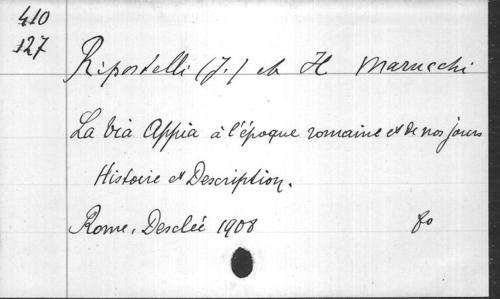 410
127
Ripostelli (J.) et H. Marucchi
La Via Appia à l'époque romaine et de nos jours
Histoire et Description.
Rome, Desclée 1908 fo